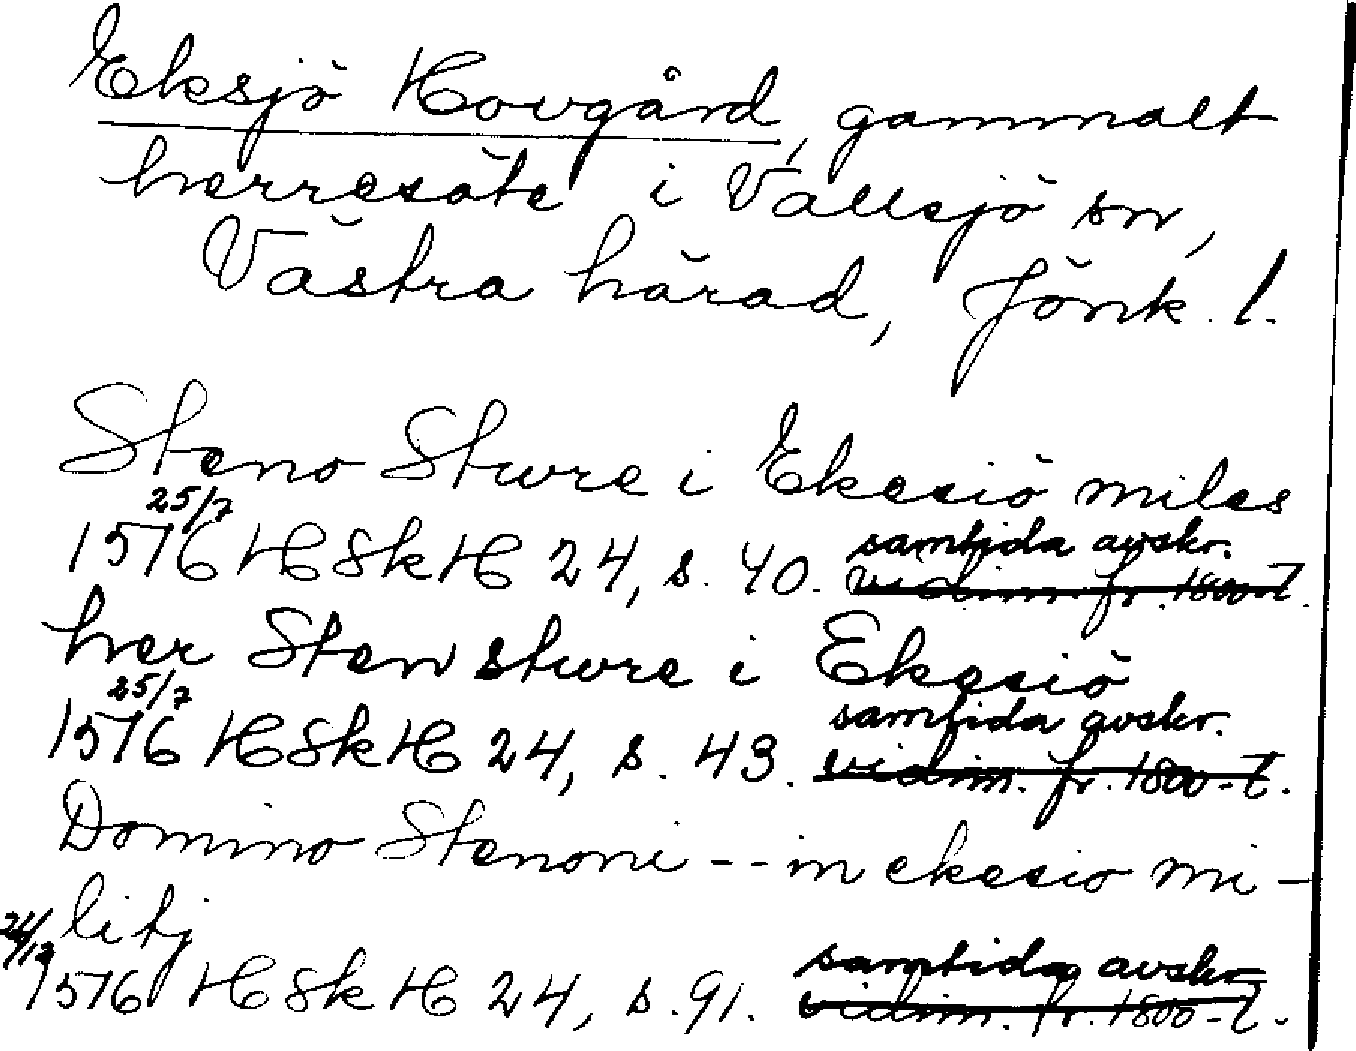 Eksjö Hovgård, gammalt
herresäte i Vallsjö sn,
Västra härad, Jönk. l.
Steno Sture i Ekesiö miles
25/7
1576 HSkH 24, s. 40. samtida avskr.
vidim. fr. 1800-t.
her Sten sture i Ekesiö
25/7
1576 HSkH 24, s. 43. samtida avskr.
vidim. fr. 1800-t.
Domino Stenoni -- in ekesio mi-
litj
24/12
1576 HSkH 24, s. 91. samtida avskr.
vidim. fr. 1800-t.